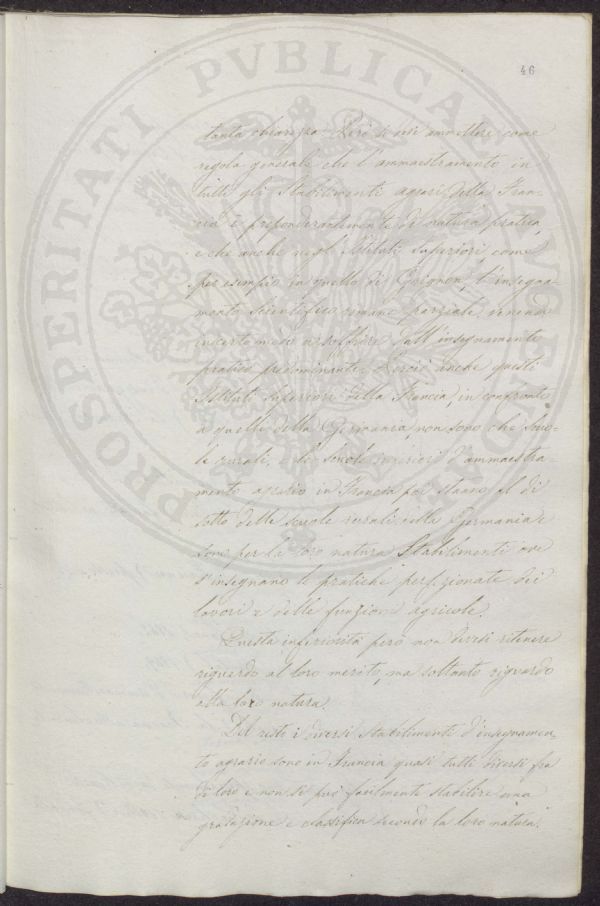 46
PROSPERITATI PVBLICAE AVGENDAE
tanta chiarezza. Però si può ammettere come
regola generale che l'ammaestramento in
tutti gli Stabilimenti agrari della Fran-
cia è preponderantemente di natura pratica,
e che anche negli Istituti Superiori, come
per esempio in quello di Grignon, l'insegna-
mento Scientifico rimane parziale, venendo
in certo modo a soffrire dall'insegnamento
pratico predominante. Perciò anche questi
Istituti Superiori della Francia, in confronto
a quelli della Germania, non sono che Scuo-
le rurali, e le scuole inferiori d'ammaestra-
mento agrario in Francia poi stanno al di
sotto delle scuole rurali della Germania e
sono per la loro natura Stabilimenti ove
s'insegnano le pratiche perfezionate dei
lavori e delle funzioni agricole.
Questa inferiorità però non devesi ritenere
riguardo al loro merito, ma soltanto riguardo
alla loro natura.
Del resto i diversi Stabilimenti d'insegnamen
to agrario sono in Francia quasi tutti diversi fra
di loro e non si può facilmente stabilire una
gradazione e classifica secondo la loro natura.